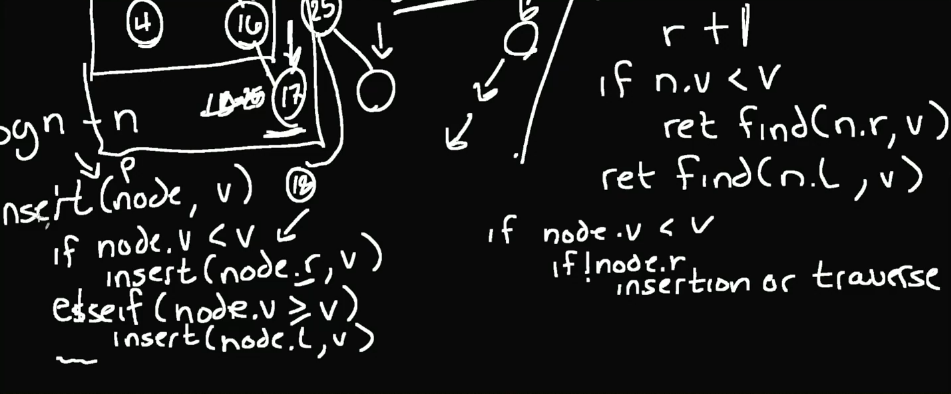 4
16
25
17
18
ogn + n
P
nsert(node, v)
if node.v < v
insert(node.r, v)
elseif (node.v ≥ v)
insert(node.l, v)
r +1
if n.v < v
ret find(n.r, v)
ret find(n.L, v)
if node.v < v
if !node.r
insertion or traverse